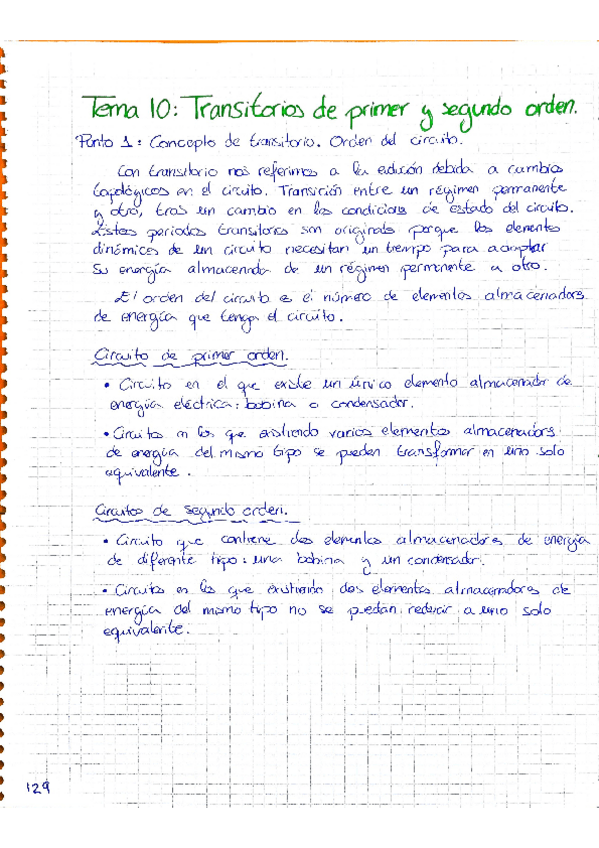 Tema 10: Transitorios de primer y segundo orden.
Punto 1: Concepto de transitorio. Orden del circuito.
Con transitorio nos referimos a la debida a cambios
topológicos en el circuito. Transición entre un régimen permanente
y otro, tras un cambio en las condiciones de estado del circuito.
Estos periodos transitorios son originados porque los elementos
dinámicos de un circuito necesitan un tiempo para adaptar
su energía almacenada de un régimen permanente a otro.
El orden del circuito es el número de elementos almacenadores
de energía que tenga el circuito.
Circuito de primer orden.
• Circuito en el que existe un único elemento almacenador de
energía eléctrica: bobina o condensador.
• Circuitos en los que existiendo varios elementos almacenadores
de energía del mismo tipo se pueden transformar en uno solo
equivalente.
Circuitos de segundo orden.
• Circuito que contiene dos elementos almacenadores de energía
de diferente tipo: una bobina y un condensador.
• Circuitos en los que existiendo dos elementos almacenadores de
energía del mismo tipo no se puedan reducir a uno solo
equivalente.
129